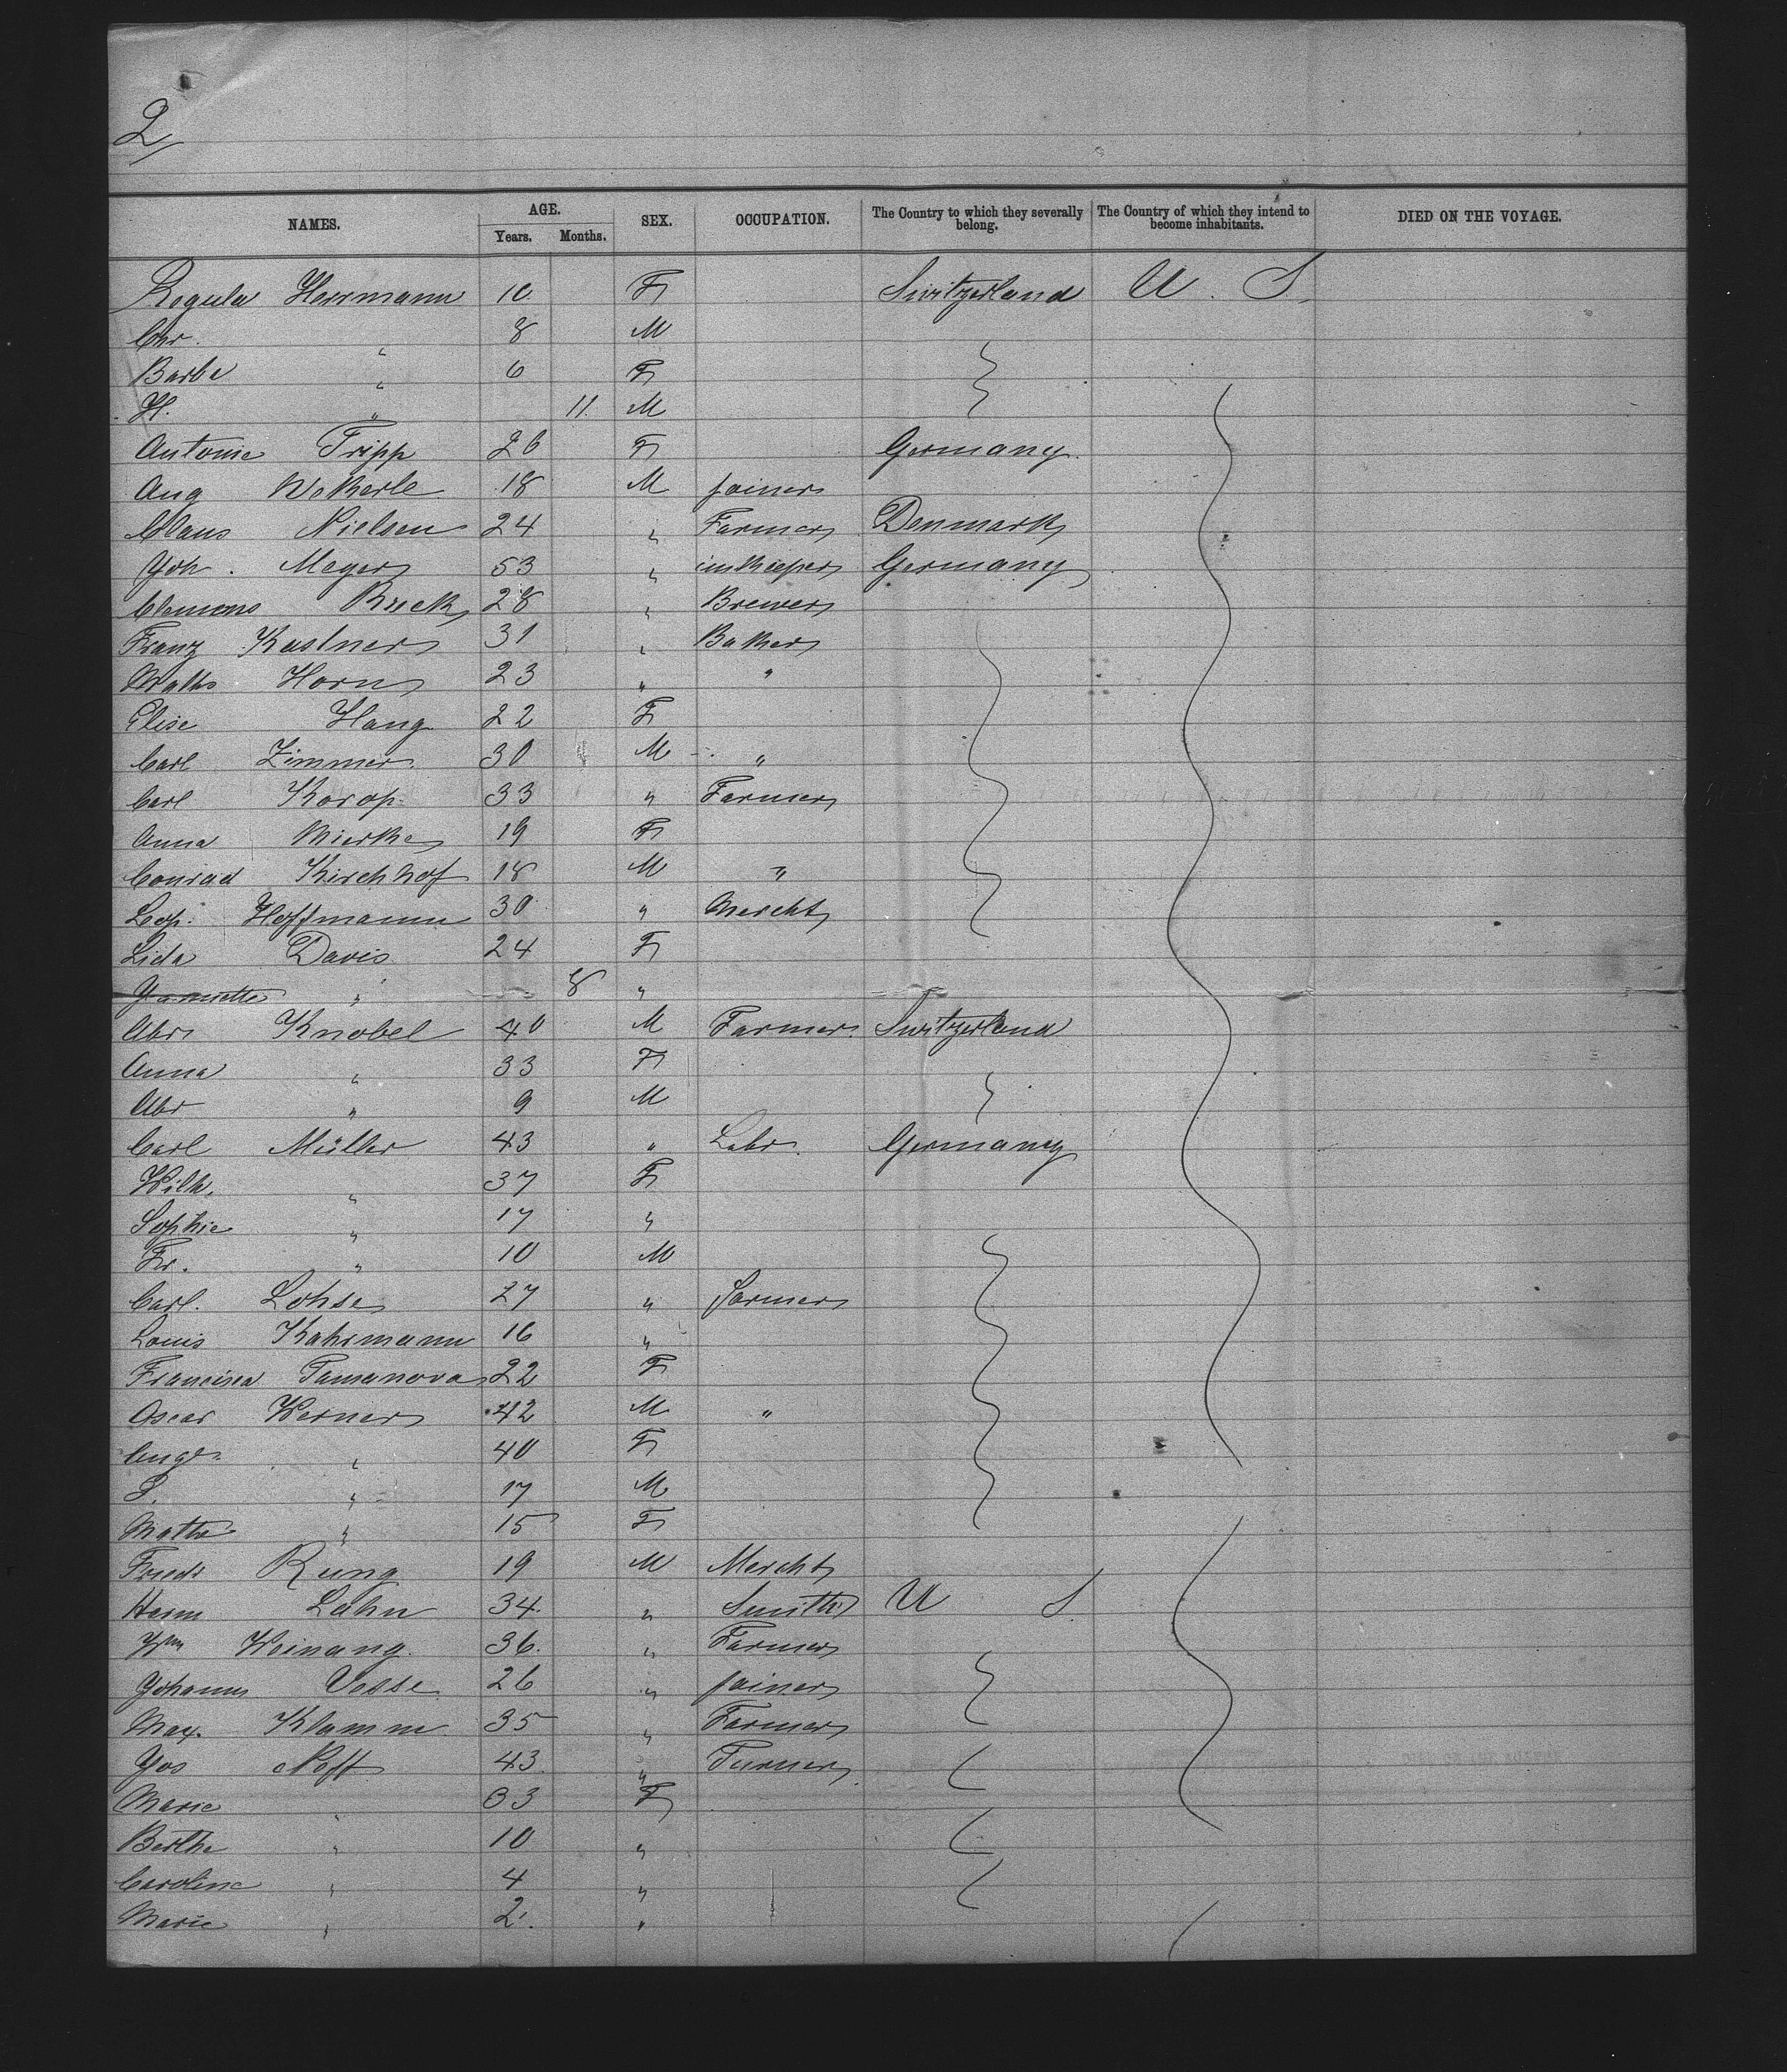 2
NAMES. AGE. Years. Months. SEX. OCCUPATION. The Country to which they severally belong. The Country of which they intend to become inhabitants. DIED ON THE VOYAGE.
Regula Herrmann 10 F Switzerland U. S.
Chr. " 8 M
Barba " 6 F
H. " 11. M
Antonie Tripp 26 F Germany.
Aug Wekerle 18 M joiner
Claus Nielsen 24 " Farmer Denmark
Joh. Meyer 53 " innkieper Germany
Clemens Bueck 28 " Brewer
Franz Kastner 31 " Baker
Maths Horn 23 " "
Elise Haug 22 F
Carl Zimmer. 30 M "
Carl Korop. 33 " Farmer
Anna Mierke 19 F
Conrad Kirchhof 18 M "
Leop. Hoffmann 30 " Mercht
Lida Davis 24 F
" 8 "
Abr. Knobel 40 M Farmer. Switzerland
Anna " 33 F
Abr " 9 M
Carl Müller 43 " Labr. Germany
Wilh. " 37 F
Sophie " 17 "
Fr. " 10 M
Carl. Lohse 27 " farmer
Louis Kahrmann 16 "
Francisca Tamanova 22 F
Oscar Werner 42 M "
" 40 F
S. " 17 M
Mathe " 15 F
Friedr Rung 19 M Mercht
Herm Lahn 34. " Smith U S.
Wm Weinang. 36. " Farmer
Johanns Vesse 26 " joiner
Max. Klamm 35 " Farmer
Jos Noff 43. " Turner
Marie " 33 F
Berthe " 10 "
Caroline " 4 "
Marie " 2. "